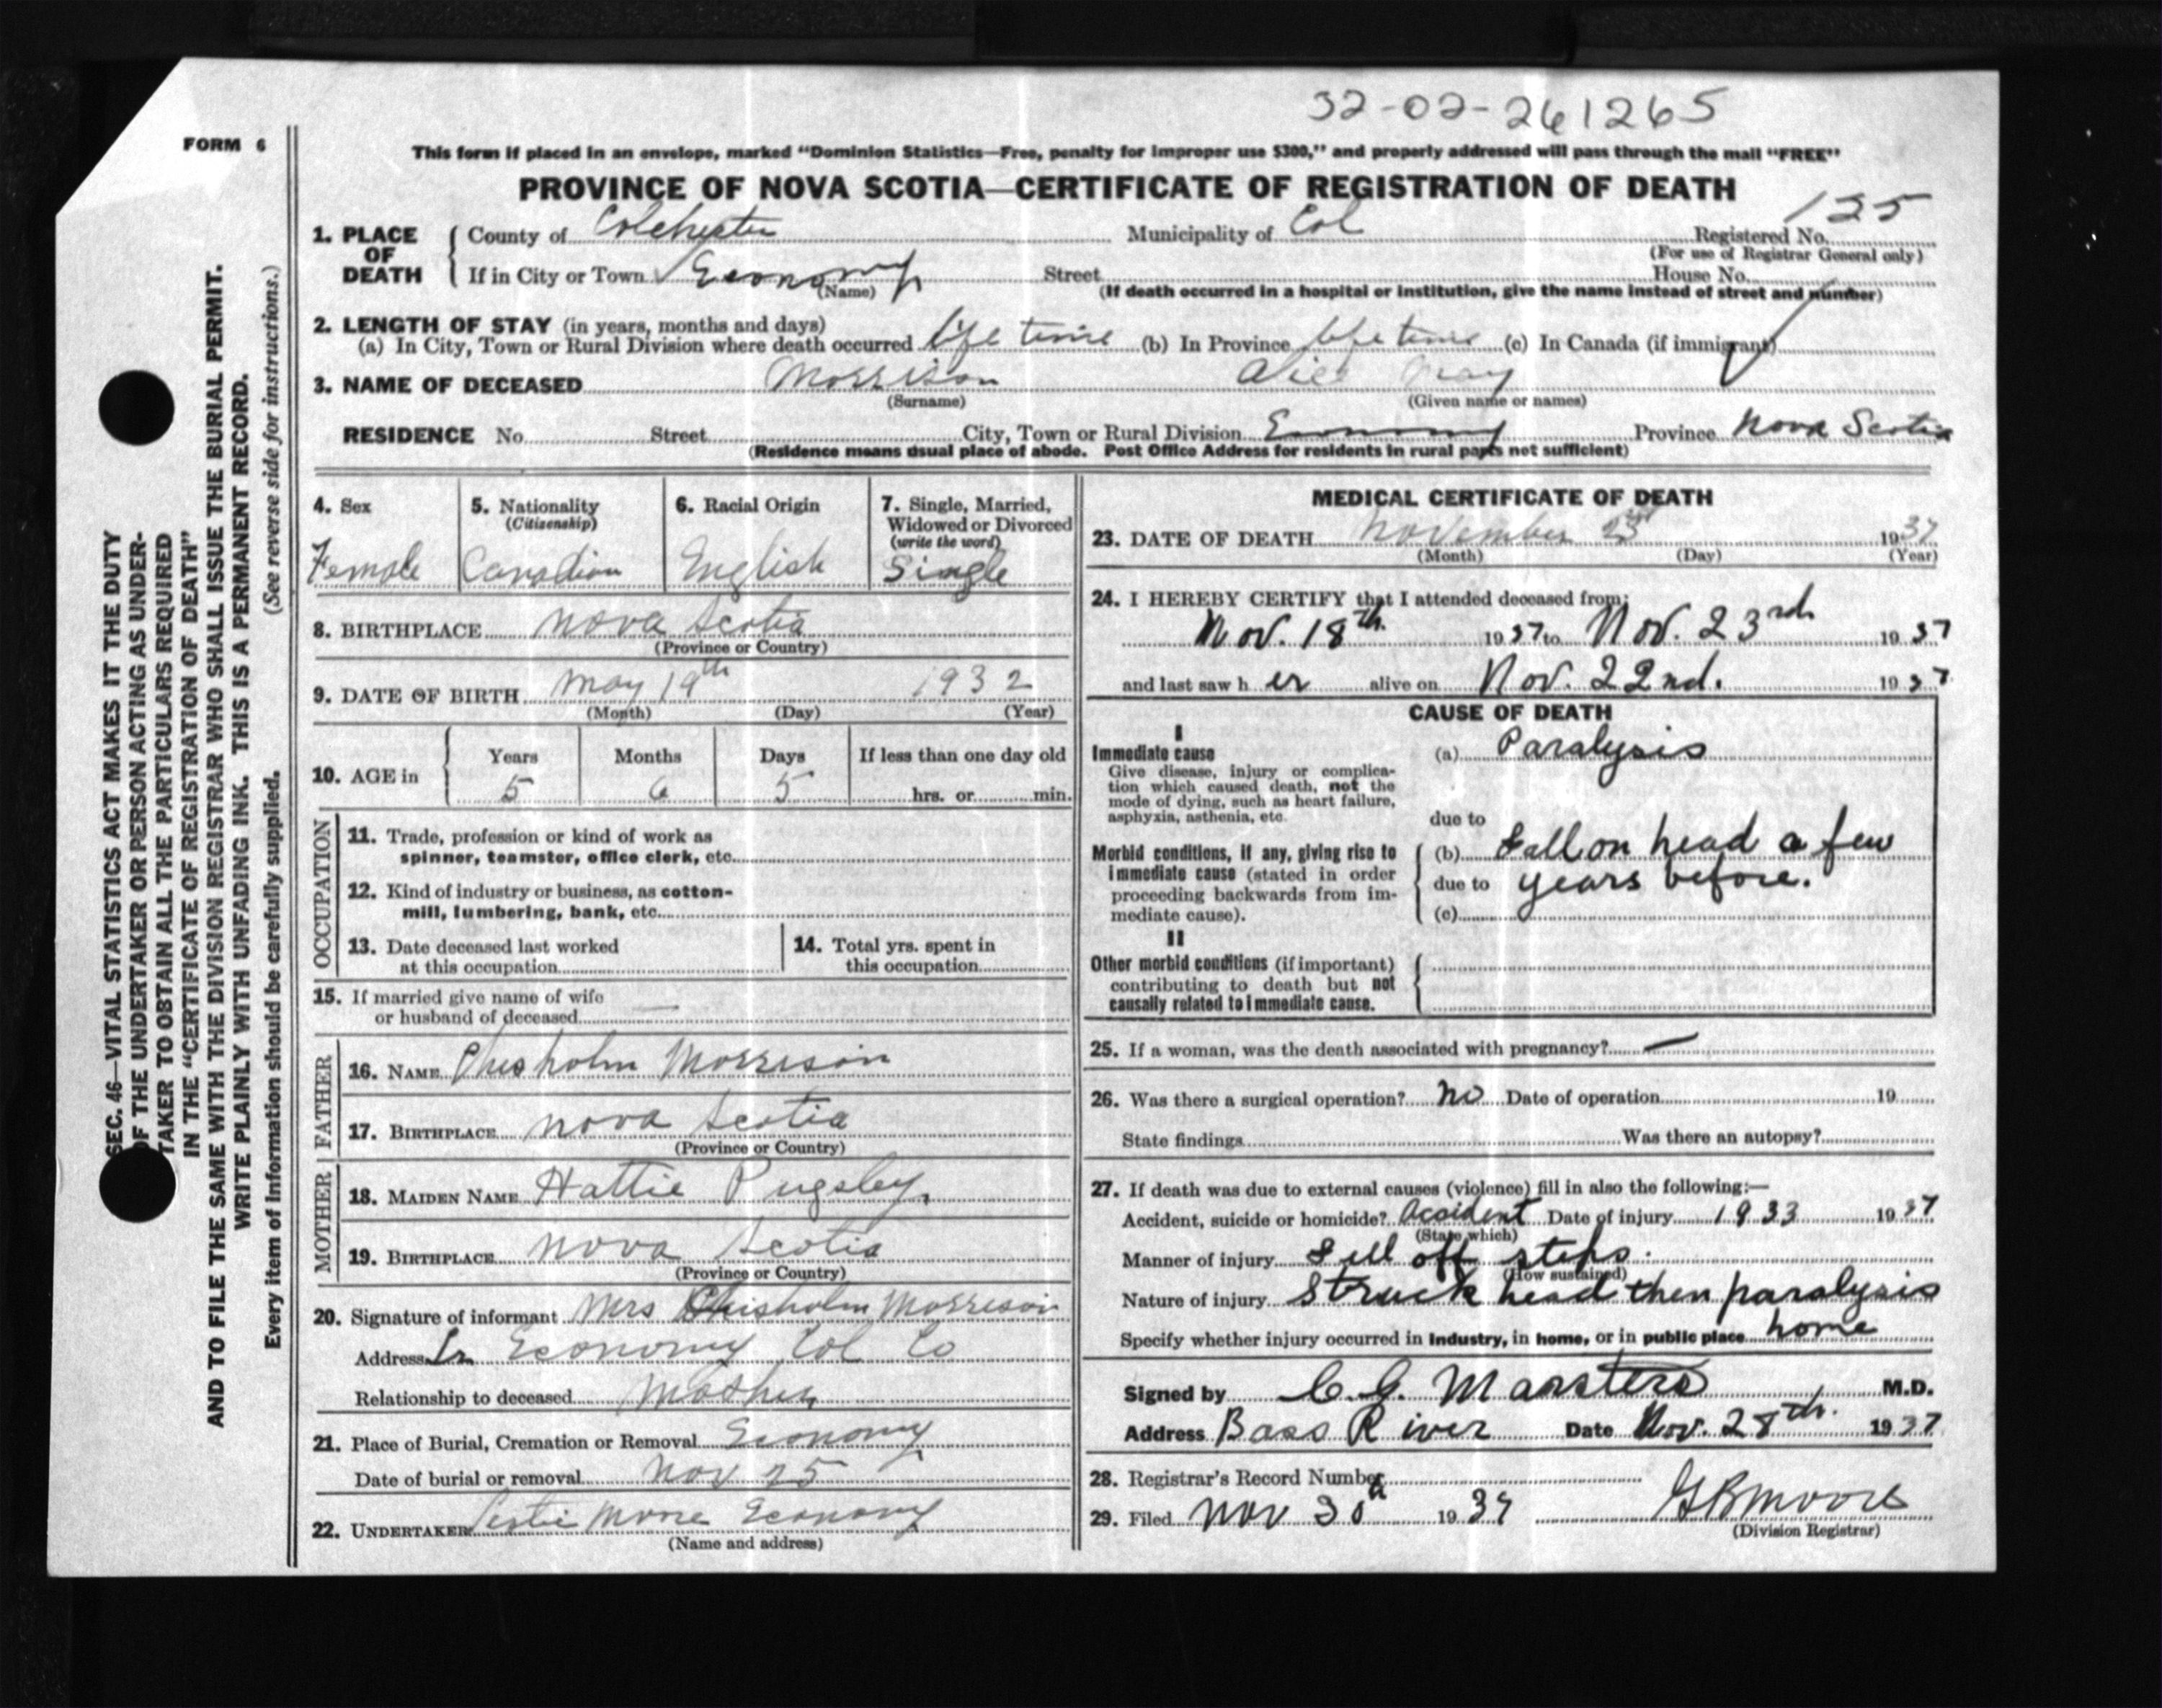 32-02-261265
FORM 6
This form if placed in an envelope, marked "Dominion Statistics—Free, penalty for improper use $300," and properly addressed will pass through the mail "FREE"
PROVINCE OF NOVA SCOTIA—CERTIFICATE OF REGISTRATION OF DEATH
1. PLACE OF DEATH County of Colchester Municipality of Col Registered No. 125
(For use of Registrar General only)
If in City or Town Economy Street House No.
(Name) (If death occurred in a hospital or institution, give the name instead of street and number)
2. LENGTH OF STAY (in years, months and days)
(a) In City, Town or Rural Division where death occurred life time (b) In Province life time (c) In Canada (if immigrant)
3. NAME OF DECEASED Morrison Alice May
(Surname) (Given name or names)
RESIDENCE No. Street City, Town or Rural Division Economy Province Nova Scotia
(Residence means usual place of abode. Post Office Address for residents in rural parts not sufficient)
4. Sex 5. Nationality (Citizenship) 6. Racial Origin 7. Single, Married, Widowed or Divorced (write the word)
Female Canadian English Single
8. BIRTHPLACE Nova Scotia
(Province or Country)
9. DATE OF BIRTH May 19th 1932
(Month) (Day) (Year)
10. AGE in Years Months Days If less than one day old
5 6 5 hrs. or min.
OCCUPATION
11. Trade, profession or kind of work as
spinner, teamster, office clerk, etc.
12. Kind of industry or business, as cotton-
mill, lumbering, bank, etc.
13. Date deceased last worked
at this occupation
14. Total yrs. spent in
this occupation
15. If married give name of wife
or husband of deceased —
FATHER
16. NAME Chisholm Morrison
17. BIRTHPLACE Nova Scotia
(Province or Country)
MOTHER
18. MAIDEN NAME Hattie Pugsley.
19. BIRTHPLACE Nova Scotia
(Province or Country)
20. Signature of informant Mrs Chisholm Morrison
Address Economy Col Co
Relationship to deceased Mother
21. Place of Burial, Cremation or Removal Economy
Date of burial or removal Nov 25
22. UNDERTAKER Economy
(Name and address)
MEDICAL CERTIFICATE OF DEATH
23. DATE OF DEATH November 23 1937
(Month) (Day) (Year)
24. I HEREBY CERTIFY that I attended deceased from:
Nov. 18th 1937 to Nov. 23rd 1937
and last saw h er alive on Nov. 22nd. 1937
CAUSE OF DEATH
I
Immediate cause (a) Paralysis
Give disease, injury or complica-
tion which caused death, not the
mode of dying, such as heart failure,
asphyxia, asthenia, etc.
due to
Morbid conditions, if any, giving rise to
immediate cause (stated in order
proceeding backwards from im-
mediate cause).
(b) Fall on head a few
due to years before.
(c)
II
Other morbid conditions (if important)
contributing to death but not
causally related to immediate cause.
25. If a woman, was the death associated with pregnancy? —
26. Was there a surgical operation? No Date of operation 19
State findings Was there an autopsy?
27. If death was due to external causes (violence) fill in also the following:—
Accident, suicide or homicide? Accident Date of injury 1933 1937
(State which)
Manner of injury Fell off steps.
(How sustained)
Nature of injury Struck head then paralysis
Specify whether injury occurred in industry, in home, or in public place home
Signed by C. G. Marsters M.D.
Address Bass River Date Nov. 28th. 1937
28. Registrar's Record Number
29. Filed Nov 30th 1937 G B Moore
(Division Registrar)
SEC. 46—VITAL STATISTICS ACT MAKES IT THE DUTY
OF THE UNDERTAKER OR PERSON ACTING AS UNDER-
TAKER TO OBTAIN ALL THE PARTICULARS REQUIRED
IN THE "CERTIFICATE OF REGISTRATION OF DEATH"
AND TO FILE THE SAME WITH THE DIVISION REGISTRAR WHO SHALL ISSUE THE BURIAL PERMIT.
WRITE PLAINLY WITH UNFADING INK. THIS IS A PERMANENT RECORD.
Every item of information should be carefully supplied. (See reverse side for instructions.)